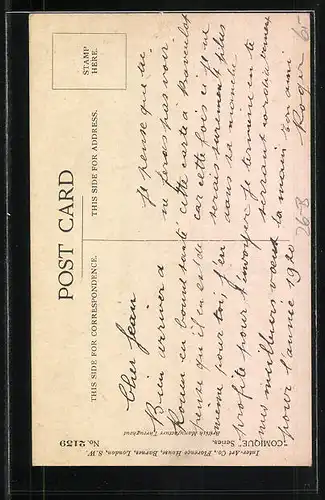 POST CARD
STAMP
HERE.
THIS SIDE FOR CORRESPONDENCE.
THIS SIDE FOR ADDRESS.
Cher Jean
Bien arriver à
Rouen en bonne santé
pense qu'il en est de
même pour toi, j'en
profite pour t'envoyer
mes meilleurs vœux
pour l'année 1920
Je pense que tu
ne feras pas voir
cette carte à
car cette fois ci il ne
serais surement plus
dans sa manche
Je termine en te
serrant cordialement
la main ton ami
Roger
268
Inter-Art Co., Florence House, Barnes, London, S.W.
"COMIQUE" Series.
British Manufacture Throughout
No. 2159